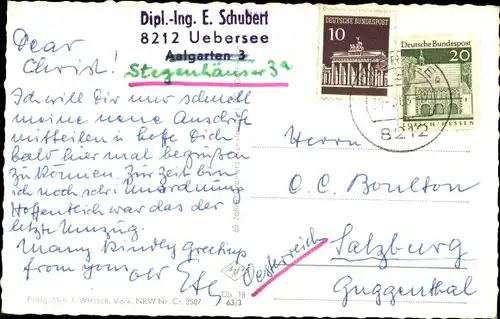 Dipl.-Ing. E. Schubert
8212 Uebersee
Aalgarten 3
Stegenhäuser 3a
Dear
Christ!
Ich will Dir nur schnell
meine neue Anschrift
mitteilen u hoffe Dich
bald hier mal begrüßen
zu können. Zur Zeit bin
ich noch sehr in Unordnung
Hoffentlich war das der
letzte Umzug.
Many kindley greetings
from your old
DEUTSCHE BUNDESPOST
10
Deutsche Bundespost
20
LORSCH/HESSEN
8212
Herrn
C. C. Boulton
Salzburg
Guggenthal
Oesterreich
Prälg. Min. f. Wirtsch. Verk. NRW Nr. Cr. 2507
Db 18
63/3